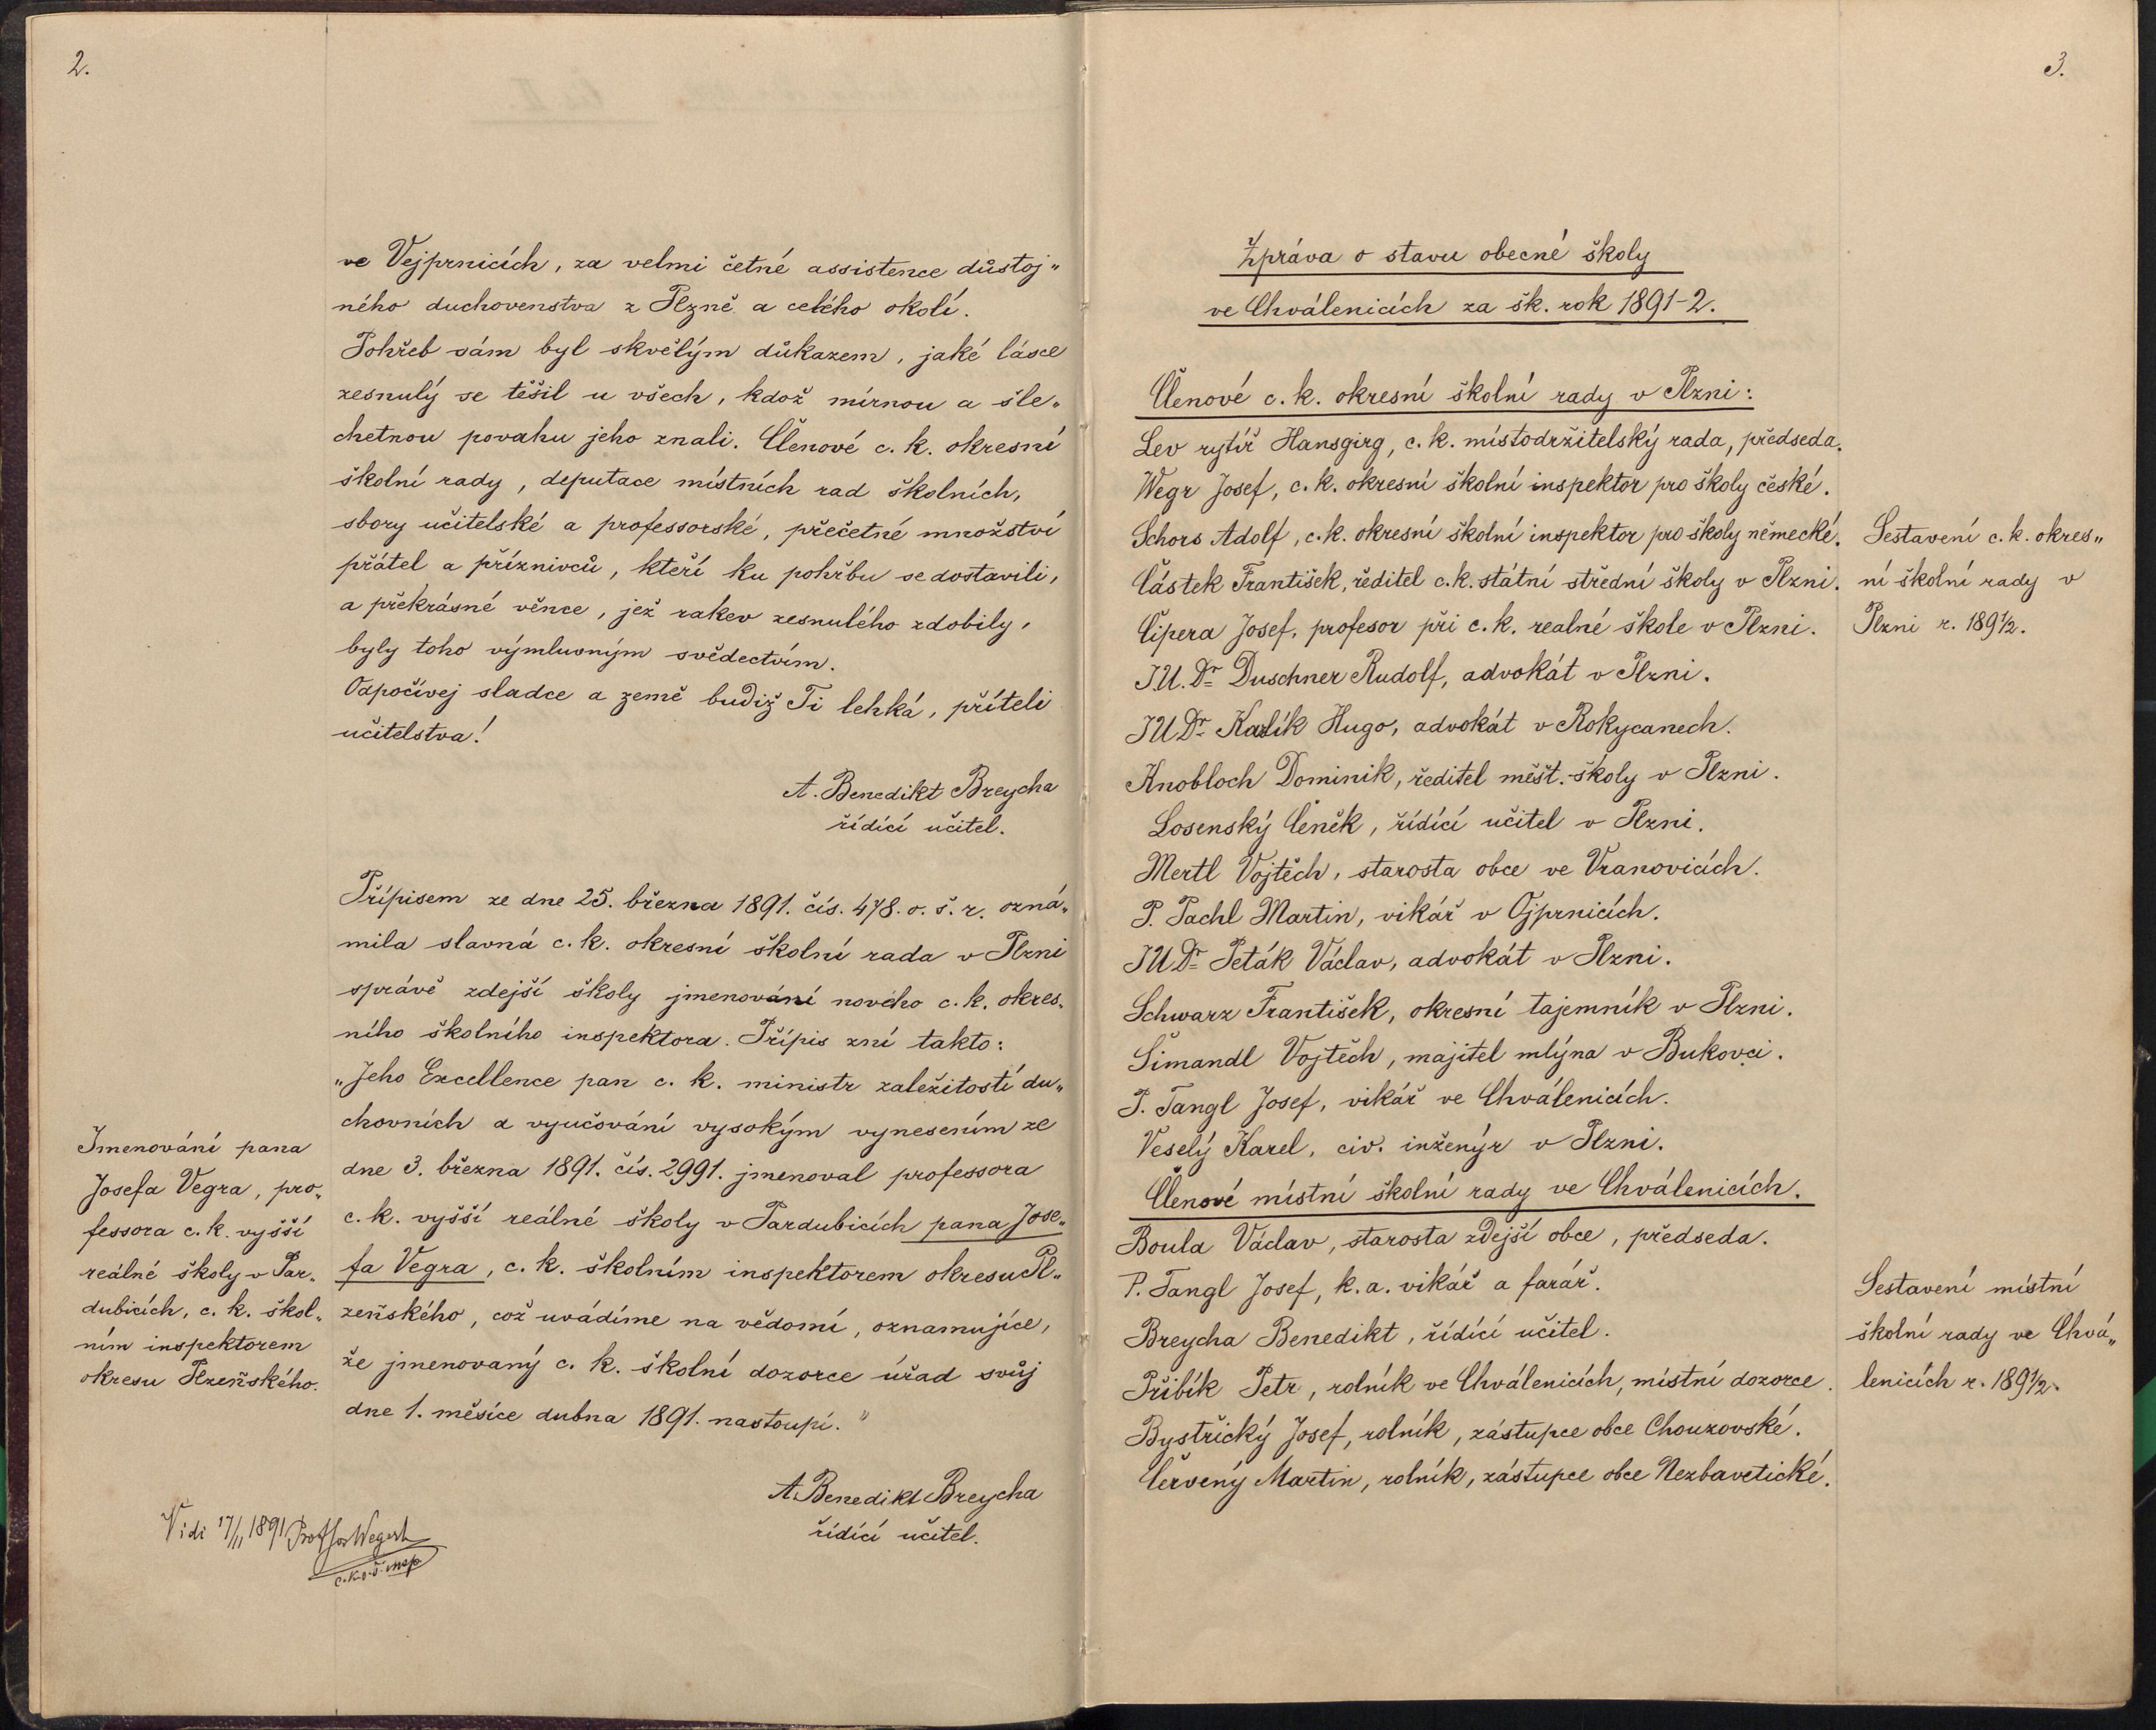 2.
ve Vejprnicích, za velmi četné assistence důstoj„
ného duchovenstva z Plzně a celého okolí.
Pohřeb sám byl skvělým důkazem, jaké lásce
zesnulý se těšil u všech, kdož mírnou a šle„
chetnou povahu jeho znali. Členové c. k. okresní
školní rady, deputace místních rad školních,
sbory učitelské a professorské, přečetné množství
přátel a příznivců, kteří ku pohřbu se dostavili,
a překrásné věnce, jež rakev zesnulého zdobily,
byly toho výmluvným svědectvím.
Odpočívej sladce a země budiž Ti lehká, příteli
učitelstva!
A. Benedikt Breycha
řídící učitel.
Přípisem ze dne 25. března 1891. čís. 478. o. š. r. ozná„
mila slavná c. k. okresní školní rada v Plzni
správě zdejší školy jmenování nového c. k. okres„
ního školního inspektora. Přípis zní takto:
„Jeho Excellence pan c. k. ministr zaležitostí du„
chovních a vyučování vysokým vynesením ze
dne 3. března 1891. čís. 2991. jmenoval professora
c. k. vyšší reálné školy v Pardubicích pana Jose„
fa Vegra, c. k. školním inspektorem okresu Pl„
zeňského, což uvádíme na vědomí, oznamujíce,
že jmenovaný c. k. školní dozorce úřad svůj
dne 1. měsíce dubna 1891. nastoupí."
Jmenování pana
Josefa Vegra, pro„
fessora c. k. vyšší
reálné školy v Par„
dubicích, c. k. škol„
ním inspektorem
okresu Plzeňského.
A. Benedikt Breycha
řídící učitel.
Vidi 17/11 1891 Prof Jos Wegr
c. k. o. š. insp
3.
Zpráva o stavu obecné školy
ve Chválenicích za šk. rok 1891-2.
Členové c. k. okresní školní rady v Plzni:
Lev rytíř Hansgirg, c. k. místodržitelský rada, předseda.
Wegr Josef, c. k. okresní školní inspektor pro školy české.
Schors Adolf, c. k. okresní školní inspektor pro školy německé.
Částek František, ředitel c. k. státní střední školy v Plzni.
Čipera Josef, profesor při c. k. realné škole v Plzni.
J.U.Dr Duschner Rudolf, advokát v Plzni.
JUDr Karlík Hugo, advokát v Rokycanech.
Knobloch Dominik, ředitel měšt. školy v Plzni.
Losenský Čeněk, řídící učitel v Plzni.
Mertl Vojtěch, starosta obce ve Vranovicích.
P. Pachl Martin, vikář v Ojprnicích.
JUDr Peták Václav, advokát v Plzni.
Schwarz František, okresní tajemník v Plzni.
Šimandl Vojtěch, majitel mlýna v Bukovci.
P. Tangl Josef, vikář ve Chválenicích.
Veselý Karel, civ. inženýr v Plzni.
Sestavení c. k. okres„
ní školní rady v
Plzni r. 1891/2.
Členové místní školní rady ve Chválenicích.
Boula Václav, starosta zdejší obce, předseda.
P. Tangl Josef, k. a. vikář a farář.
Breycha Benedikt, řídící učitel.
Přibík Petr, rolník ve Chválenicích, místní dozorce.
Bystřický Josef, rolník, zástupce obce Chouzovské.
Červený Martin, rolník, zástupce obce Nezbavetické.
Sestavení místní
školní rady ve Chvá„
lenicích r. 1891/2.